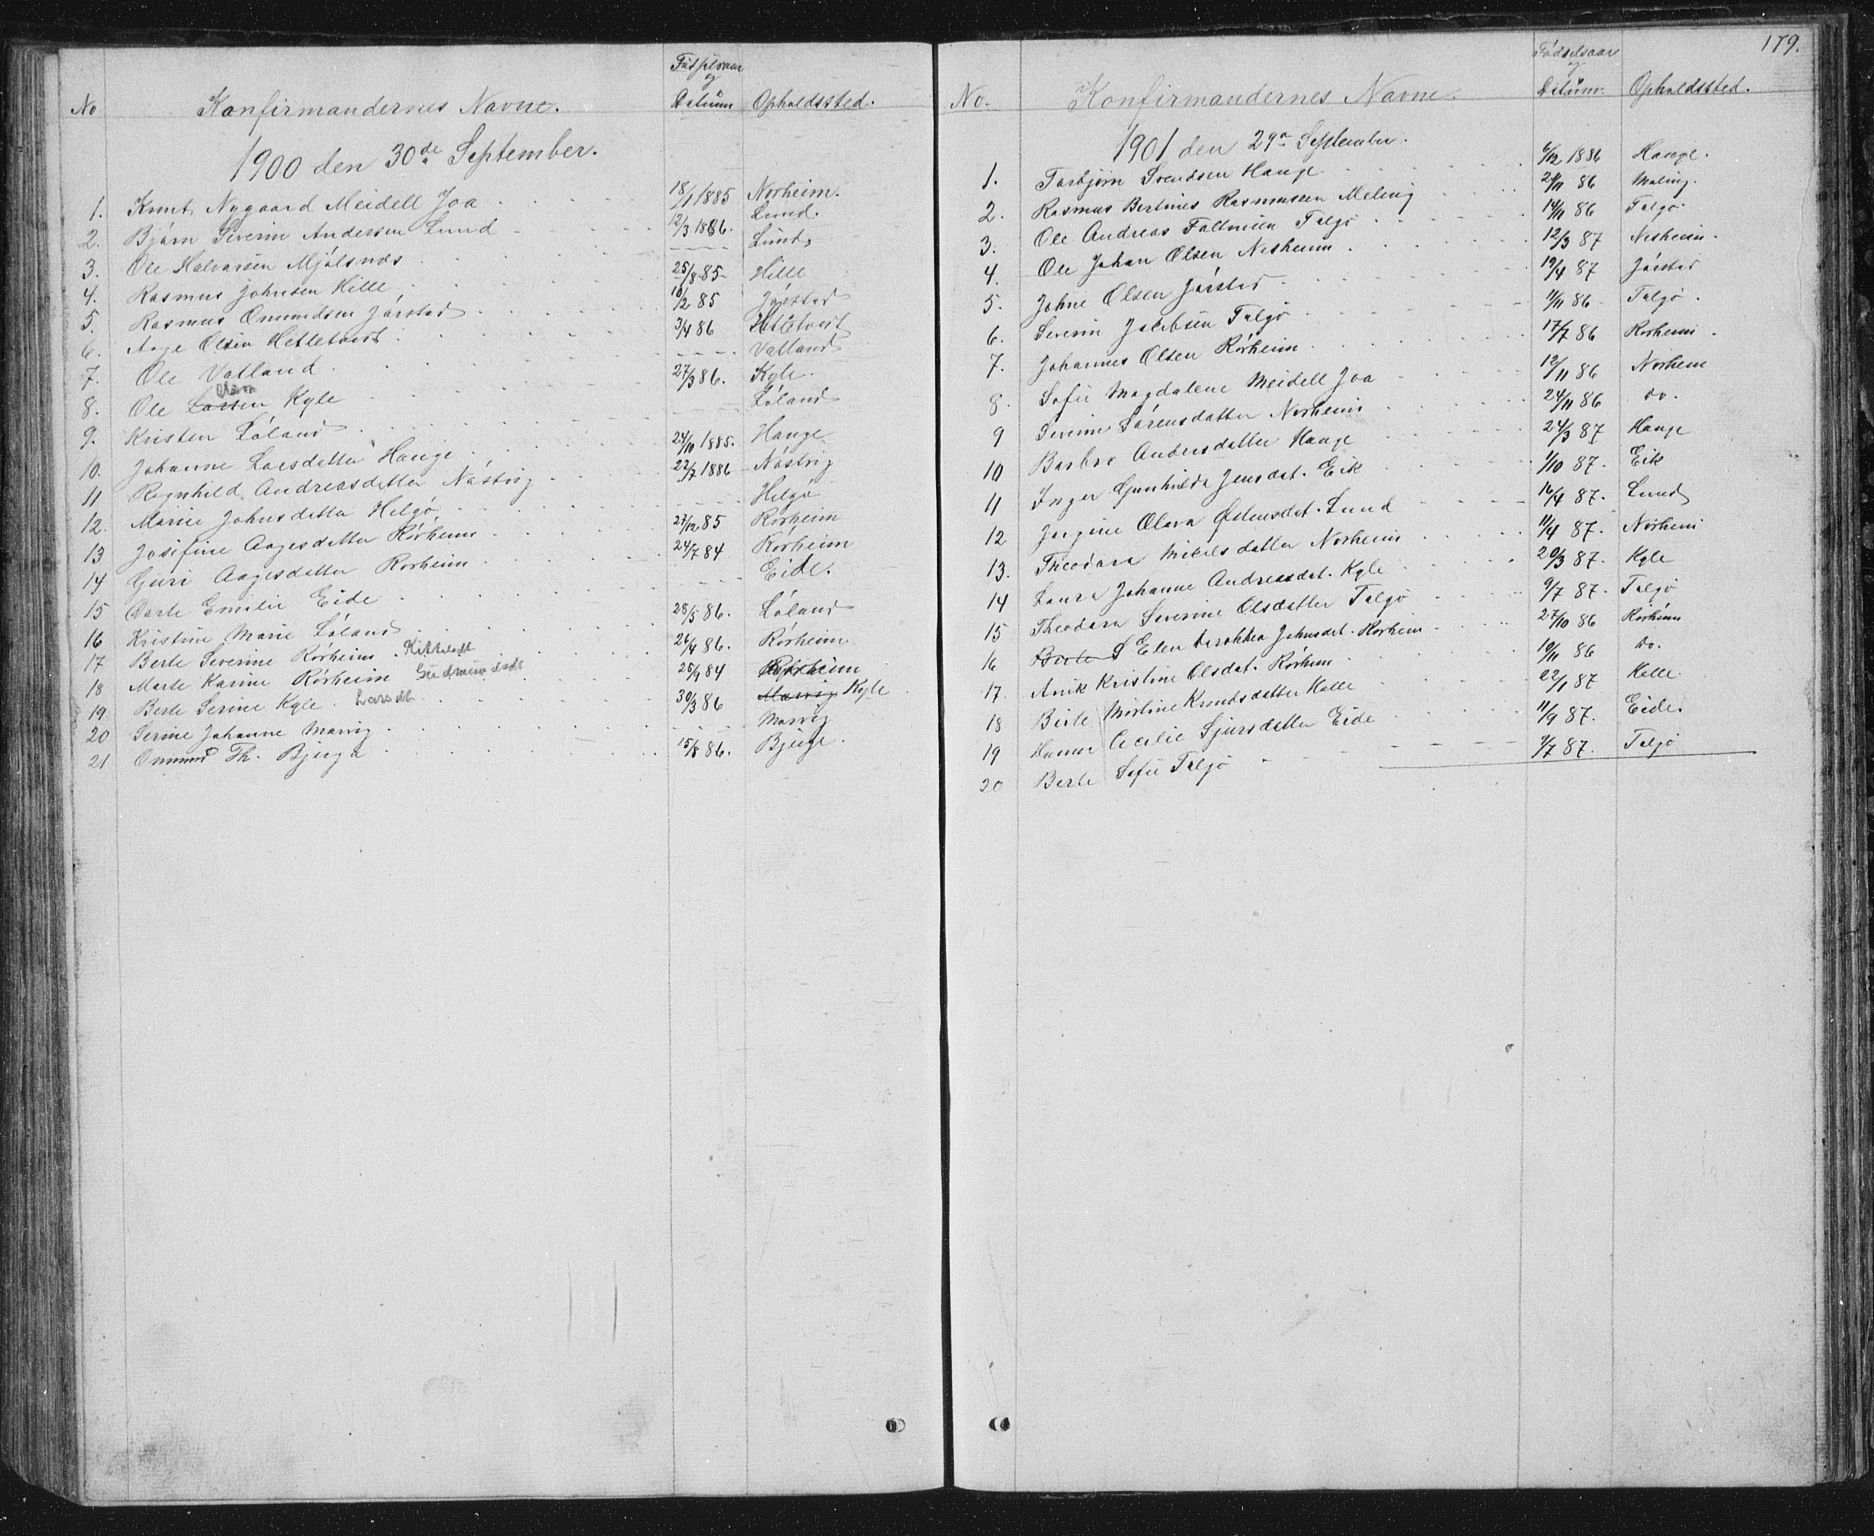 Fødselsaar
og
No Konfirmandernes Navne. Datum Opholdssted.
1900 den 30de September.
1. Knut Nygaard Meidell Joa 18/1 1885 Norheim.
2. Bjørn Severin Andersen Lund 12/3 1886. Lund.
3. Ole Halvorsen Mjølsnes Lund
4. Rasmus Johnsen Hille 25/8 85 Hille
5. Rasmus Omundsen Jørstad 10/2 85 Jørstad
6. Aage Olsen Hetletvedt 3/4 86 Hetletvedt
7. Ole Vatland Vatland
8. Ole Larsen Olsen Kyle 27/3 86. Kyle.
9. Kristen Løland Løland
10. Johanne Larsdatter Hauge 24/10 1885. Hauge
11 Regnhild Andreasdatter Nåstvig 22/7 1886 Nåstvig
12. Marie Johnsdatter Helgø Helgø
13 Josefine Aagesdatter Rørheim 27/12 85 Rørheim
14 Guri Aagesdatter Rørheim 24/7 84 Rørheim
15 Dorte Emilie Eide Eide.
16 Kristine Marie Løland 25/5 86. Løland
17 Berte Severine Rørheim Kittelsdt 26/4 86. Rørheim
18 Marte Karine Rørheim Gudmundsdt 25/9 84 Rørheim
19 Berte Serine Kyle Larsdt 30/3 86 Marvig Kyle
20 Serine Johanne Marvig Marvig
21 Omund Th. Bjerga 15/8 86. Bjerge.
179.
Fødselsaar
og
No. Konfirmandernes Navne. Datum. Opholdssted.
1901 den 29de September.
1. Torbjørn Svendsen Hauge 6/12 1886 Hauge.
2. Rasmus Bertines Rasmussen Meling 24/11 86 Meling.
3. Ole Andreas Faltinsen Talgø 14/11 86 Talgø.
4. Ole Johan Olsen Nesheim 12/3 87 Nesheim.
5. Johne Olsen Jørstad 19/4 87 Jørstad
6. Severin Jakobsen Talgø 11/11 86 Talgø.
7. Johannes Olsen Rørheim 17/7 86 Rørheim.
8. Sofie Magdalene Meidell Joa 12/11 86 Norheim
9 Serine Sørensdatter Norheim 24/11 86 do.
10 Barbro Andersdatter Hauge 24/3 87 Hauge
11 Inger Gunhilda Jensdat. Eik 1/10 87. Eik
12 Jørgine Olava Østensdat. Lund 16/4 87. Lund
13. Theodora Mikelsdatter Norheim 11/4 87. Norheim
14 Laura Johanne Andreasdat. Kyle 20/3 87. Kyle
15 Theodora Severine Olsdatter Talgø 9/7 87. Talgø
16 Berte S Elen Johnsdat. Rørheim 27/10 86 Rørheim
17. Anik Kristine Olsdat. Rørheim 19/11 86 do.
18 Berte Martine Knudsdatter Halle 22/1 87 Halle
19 Hanne Cecilie Sjursdatter Eide 11/9 87. Eide.
20 Berte Sofie Talgø 7/7 87. Talgø